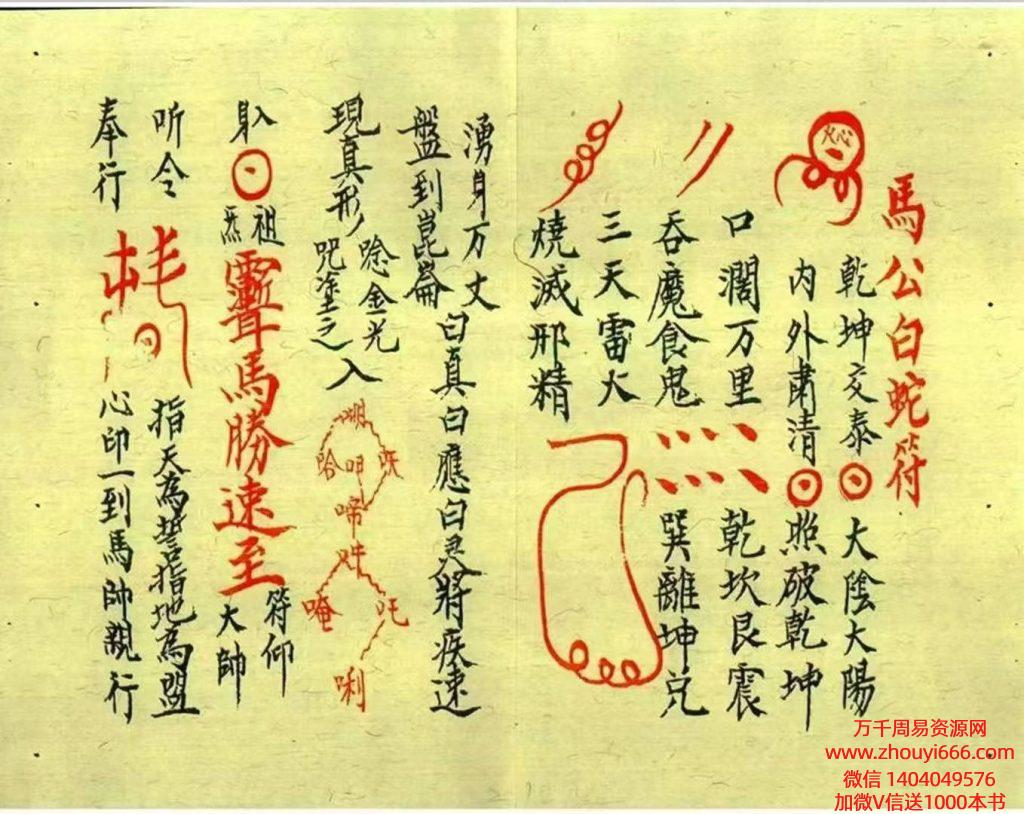 馬公白蛇符
火心
乾坤交泰
大陰大陽
内外肅清
照破乾坤
口濶万里
乾坎艮震
吞魔食鬼
巽離坤兑
三天雷火
燒滅邪精
湧身万丈
盤到崑崙
曰真曰應曰灵將疾速
現真形
唸金光
咒塗之
入
唵
吽
吒
唎
祖
炁
馬勝速至
符仰
大帥
听令
指天為誓指地為盟
奉行
心印一到馬帥親行
万千周易资源网
www.zhouyi666.com
微信 1404049576
加微V信送1000本书